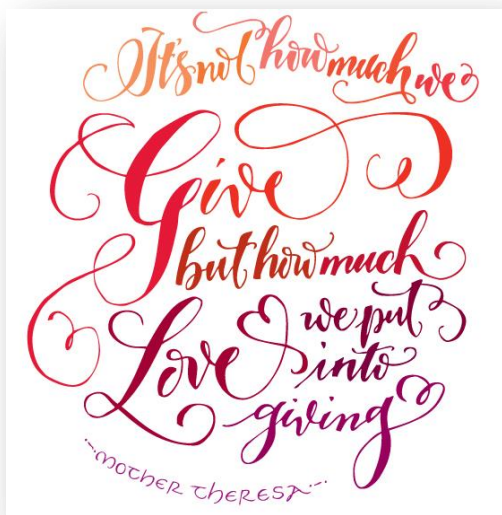 It's not how much we
Give
but how much
Love we put
into
giving
...MOTHER THERESA...